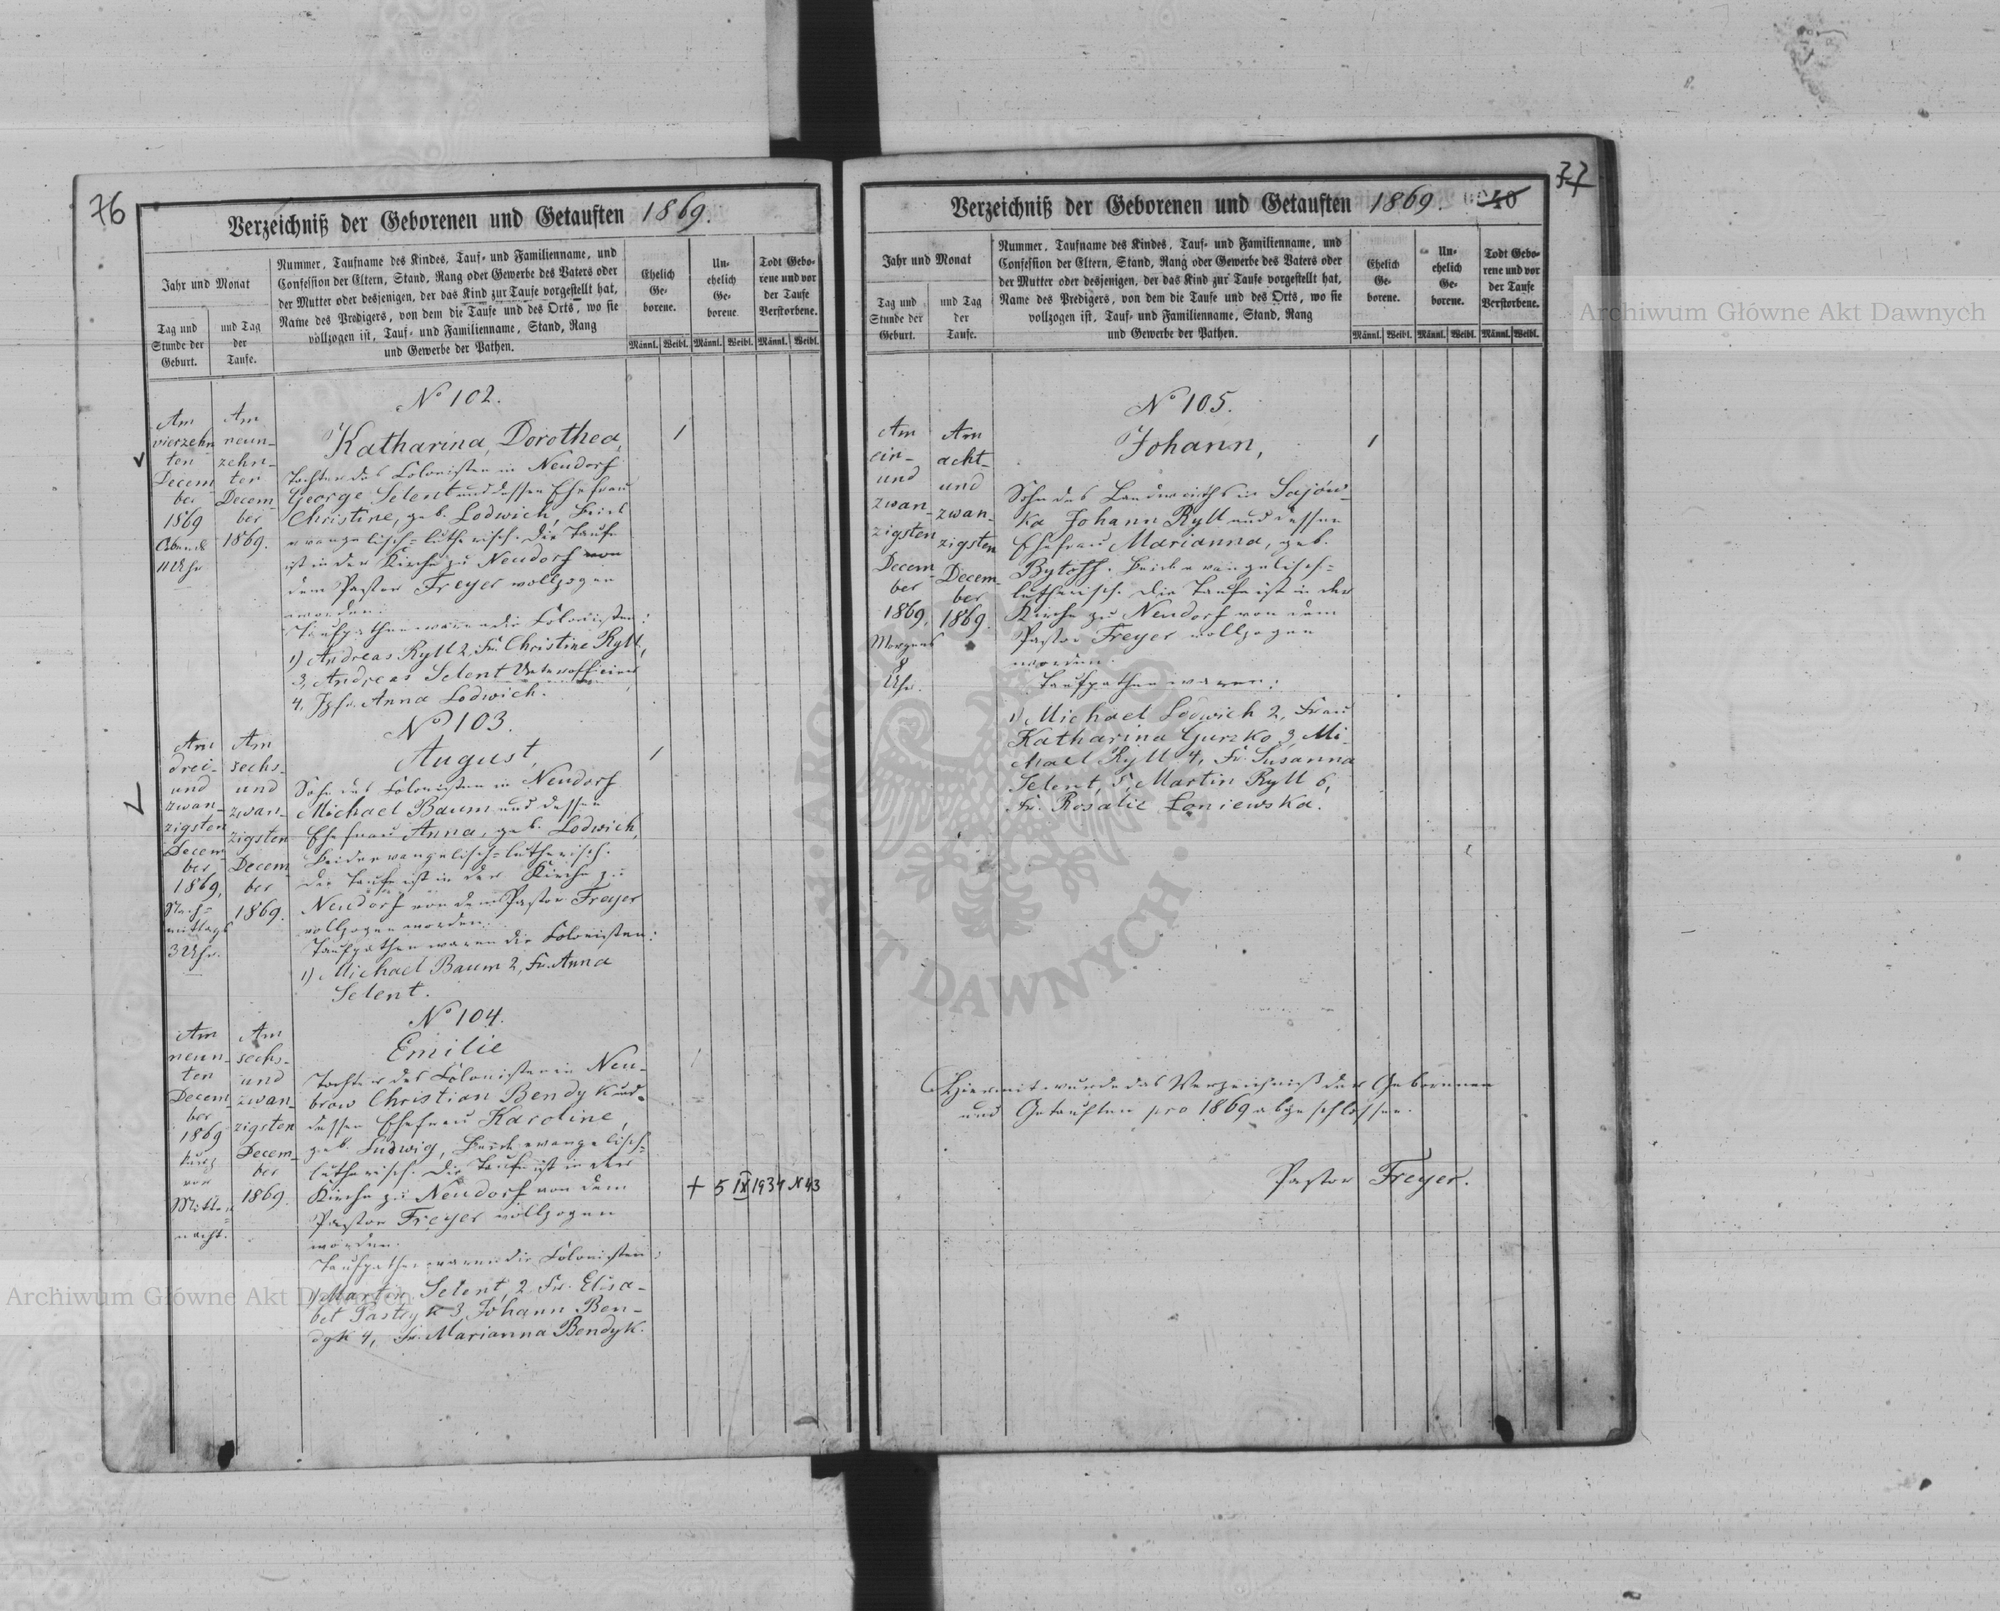 76
Verzeichniß der Geborenen und Getauften 1869.
Jahr und Monat
Tag und
Stunde der
Geburt.
und Tag
der
Taufe.
Nummer, Taufname des Kindes, Tauf- und Familienname, und
Confession der Eltern, Stand, Rang oder Gewerbe des Vaters oder
der Mutter oder desjenigen, der das Kind zur Taufe vorgestellt hat,
Name des Predigers, von dem die Taufe und des Orts, wo sie
vollzogen ist, Tauf- und Familienname, Stand, Rang
und Gewerbe der Pathen.
Ehelich
Ge-
borene.
Un-
ehelich
Ge-
borene
Todt Gebo-
rene und vor
der Taufe
Verstorbene.
Männl. Weibl. Männl. Weibl. Männl. Weibl.
Am
vierzehn
ten
Decem
ber
1869
Abends
11 Uhr
Am
neun-
zehn-
ter
Decem-
ber
1869.
No 102.
Katharina, Dorothea,
Tochter des Colonisten in Neudorf
George Selent und dessen Ehefrau
Christine, geb. Lodwich, Beide
evangelisch-lutherisch. Die Taufe
ist in der Kirche zu Neudorf von
dem Pastor Freyer vollzogen
worden.
Taufpathen waren die Colonisten:
1) Andreas Ryll 2, Fr. Christine Ryll,
3, Andreas Selent Unterofficier
4, Jgfr. Anna Lodwich.
Am
drei-
und
zwan-
zigsten
Decem-
ber
1869,
Nach-
mittags
3 Uhr.
Am
sechs-
und
zwan-
zigsten
Decem
ber
1869.
No 103.
August,
Sohn des Colonisten in Neudorf
Michael Baum und dessen
Ehefrau Anna, geb. Lodwich,
Beide evangelisch-lutherisch.
Die Taufe ist in der Kirche zu
Neudorf von dem Pastor Freyer
vollzogen worden.
Taufpathen waren die Colonisten:
1) Michael Baum 2, Fr. Anna
Selent.
Am
neun-
ten
Decem-
ber
1869
kurz
vor
Mitter-
nacht.
Am
sechs-
und
zwan-
zigsten
Decem-
ber
1869.
No 104.
Emilie
Tochter des Colonisten in Neu-
brow Christian Bendyk und
dessen Ehefrau Karoline,
geb. Ludwig, Beide evangelisch-
lutherisch. Die Taufe ist in der
Kirche zu Neudorf von dem
Pastor Freyer vollzogen
worden.
Taufpathen waren die Colonisten:
1) Martin Selent, 2 Fr. Elisa-
bet Pastryk 3, Johann Ben-
dyk 4, Fr. Marianna Bendyk.
+ 5 IX 1934 N 43
77
Verzeichniß der Geborenen und Getauften 1869.
40
Jahr und Monat
Tag und
Stunde der
Geburt.
und Tag
der
Taufe.
Nummer, Taufname des Kindes, Tauf- und Familienname, und
Confession der Eltern, Stand, Rang oder Gewerbe des Vaters oder
der Mutter oder desjenigen, der das Kind zur Taufe vorgestellt hat,
Name des Predigers, von dem die Taufe und des Orts, wo sie
vollzogen ist, Tauf- und Familienname, Stand, Rang
und Gewerbe der Pathen.
Ehelich
Ge-
borene.
Un-
ehelich
Ge-
borene.
Todt Gebo-
rene und vor
der Taufe
Verstorbene.
Männl. Weibl. Männl. Weibl. Männl. Weibl.
Am
ein-
und
zwan-
zigsten
Decem-
ber
1869,
Morgens
8
Uhr.
Am
acht-
und
zwan-
zigsten
Decem-
ber
1869.
No 105.
Johann,
Sohn des Landwirths in Sajów-
ka Johann Ryll und dessen
Ehefrau Marianna, geb.
Bytoff. Beide evangelisch-
lutherisch. Die Taufe ist in der
Kirche zu Neudorf von dem
Pastor Freyer vollzogen
worden.
Taufpathen waren:
1) Michael Lodwich 2, Frau
Katharina Gurzko 3, Mi-
chael Ryll 4, Fr. Susanna
Selent, 5, Martin Ryll 6,
Fr. Rosalie Łoniewska.
Hiermit wurde das Verzeichniß der Geborenen
und Getauften pro 1869 abgeschlossen.
Pastor Freyer.
Archiwum Główne Akt Dawnych
Archiwum Główne Akt Dawnych